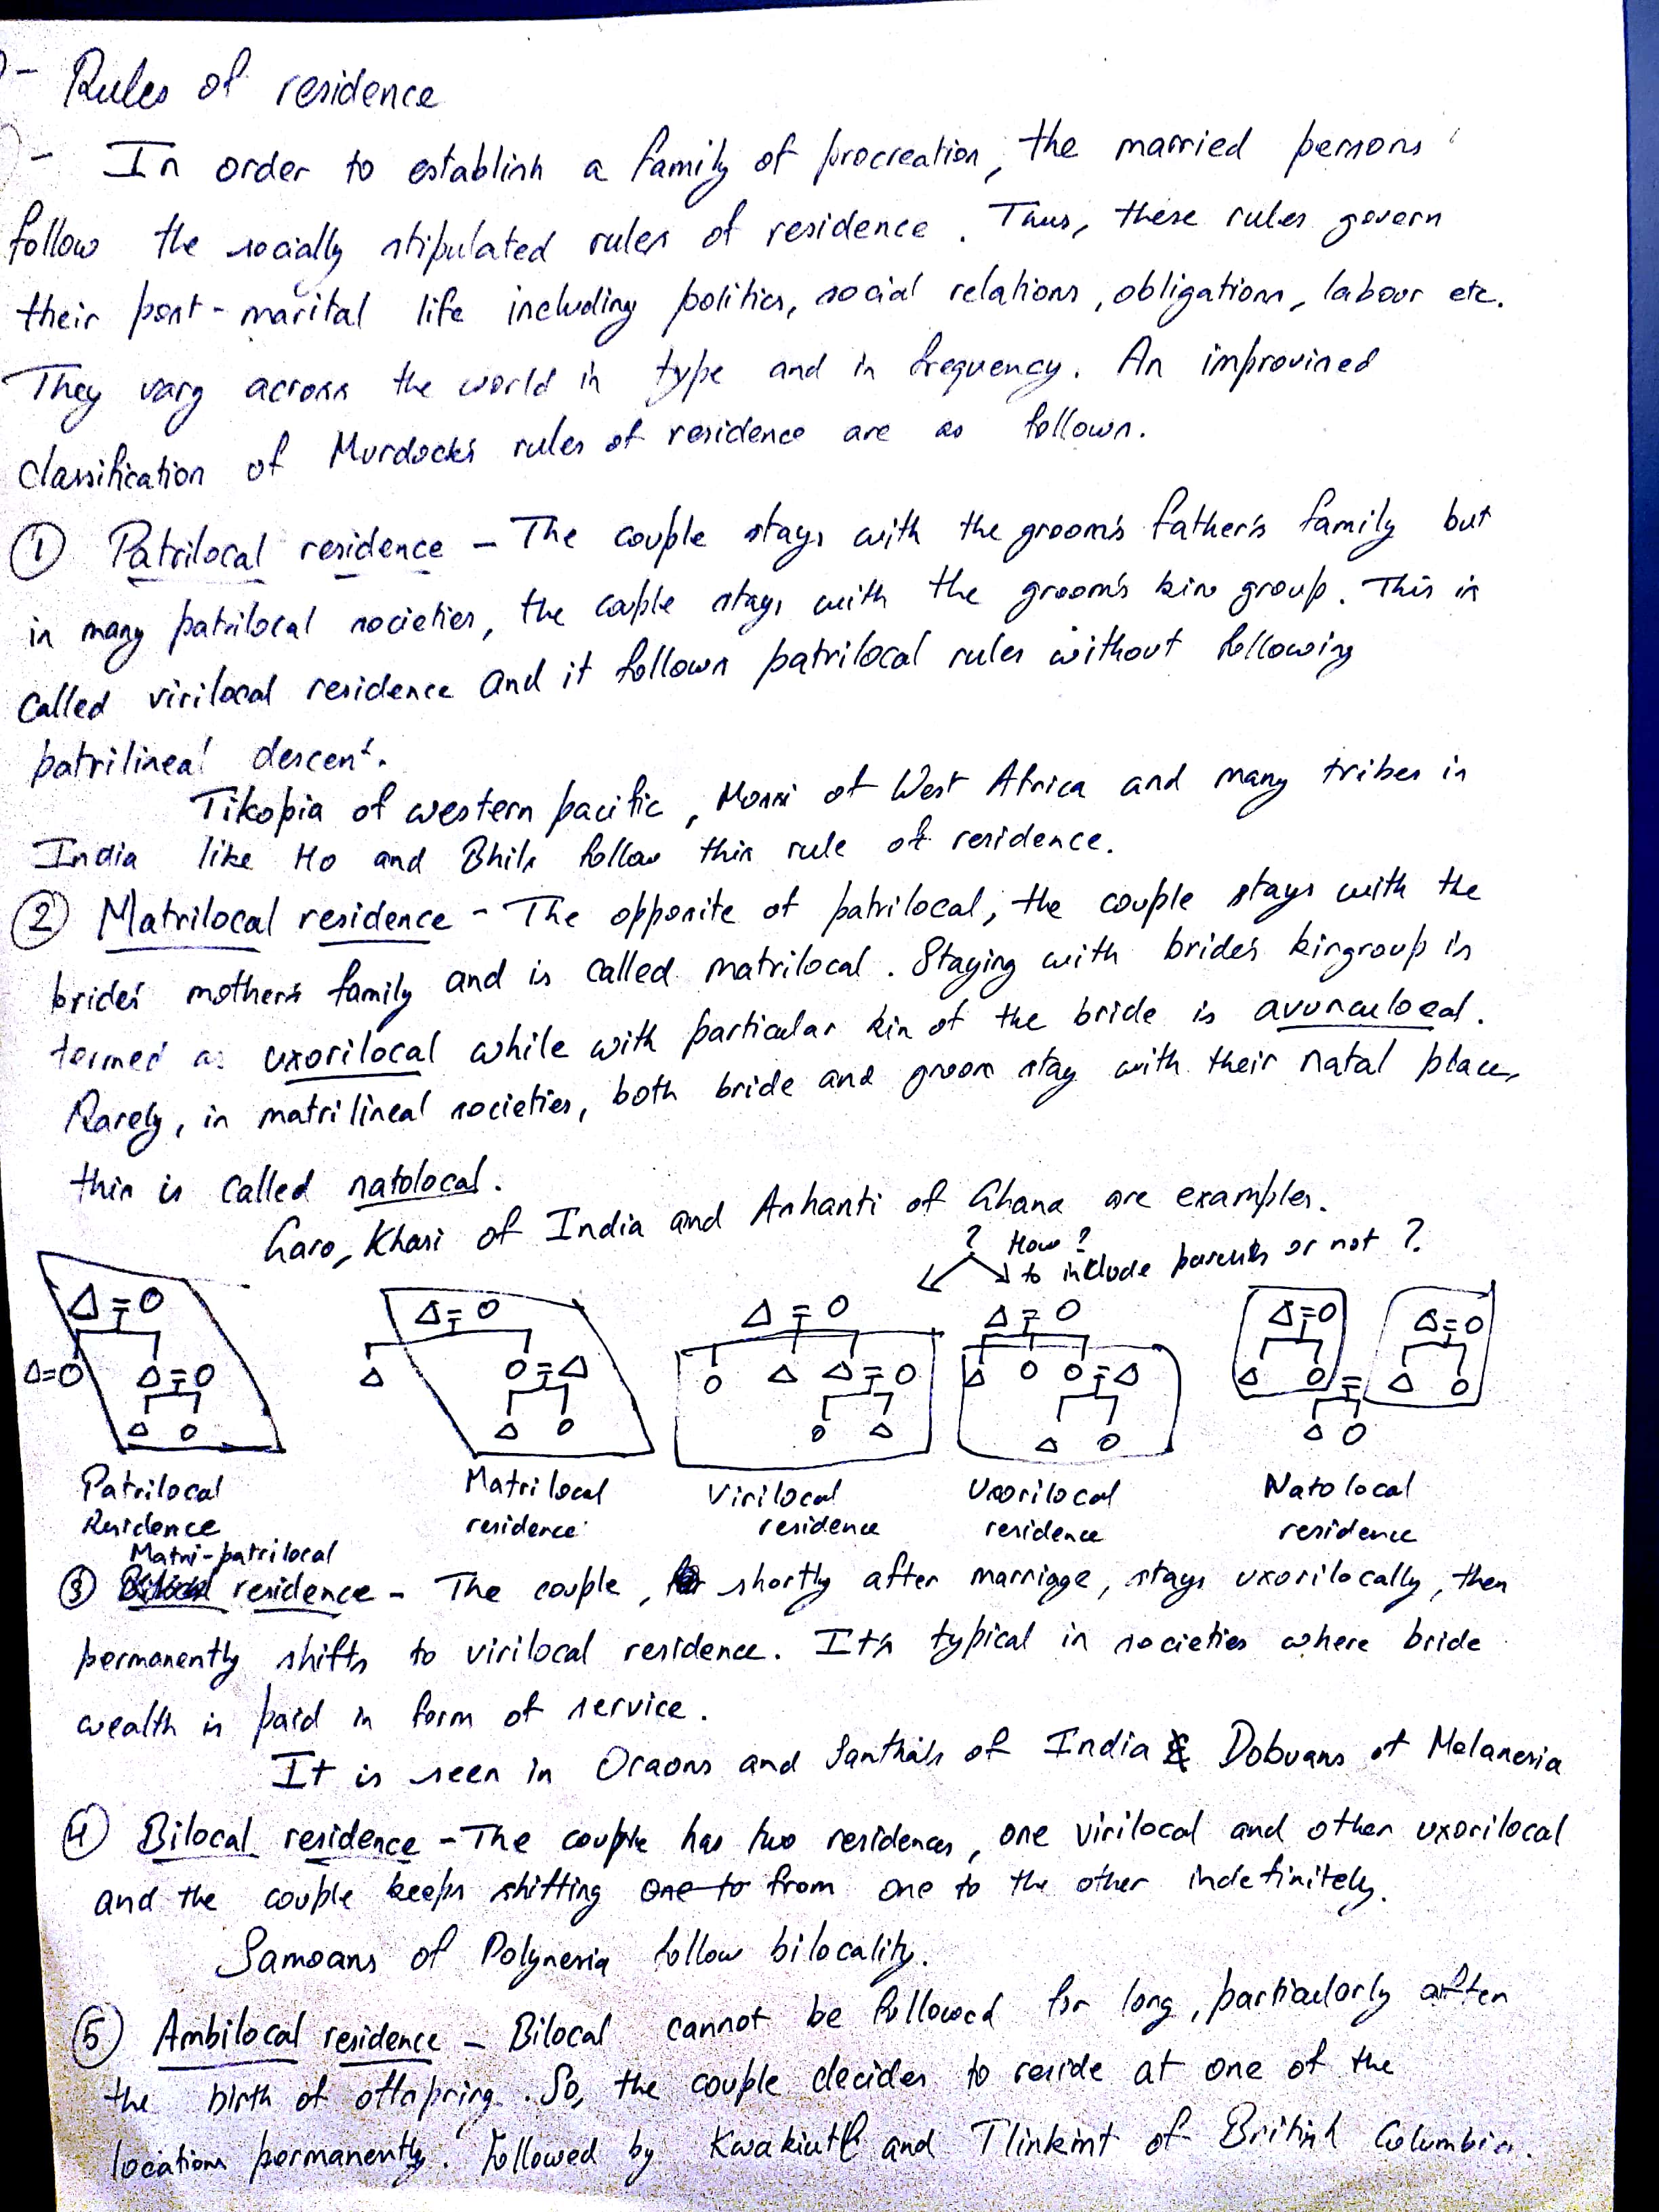 - Rules of residence
- In order to establish a family of procreation, the married persons
follow the socially stipulated rules of residence. Thus, these rules govern
their post-marital life including politics, social relations, obligations, labour etc.
They vary across the world in type and in frequency. An improvised
classification of Murdock's rules of residence are as follows.
① Patrilocal residence - The couple stays with the groom's father's family but
in many patrilocal societies, the couple stays with the groom's kin group. This is
called virilocal residence and it follows patrilocal rules without following
patrilineal descent.
Tikopia of western pacific, Mossi of West Africa and many tribes in
India like Ho and Bhils follow this rule of residence.
② Matrilocal residence - The opposite of patrilocal, the couple stays with the
brides' mother's family and is called matrilocal. Staying with bride's kingroup is
termed as uxorilocal while with particular kin of the bride is avunculocal.
Rarely, in matrilineal societies, both bride and groom stay with their natal place,
this is called natolocal.
Garo, Khasi of India and Ashanti of Ghana are examples.
? How ?
to include parents or not ?
Patrilocal Matrilocal Virilocal Uxorilocal Natolocal
Residence residence residence residence residence
Matri-patrilocal
③ residence - The couple, shortly after marriage, stays uxorilocally, then
permanently shifts to virilocal residence. It's typical in societies where bride
wealth is paid in form of service.
It is seen in Oraons and Santhals of India & Dobuans of Melanesia
④ Bilocal residence - The couple has two residences, one virilocal and other uxorilocal
and the couple keeps shifting one to from one to the other indefinitely.
Samoans of Polynesia follow bilocality.
⑤ Ambilocal residence - Bilocal cannot be followed for long, particularly after
the birth of offspring. So, the couple decides to reside at one of the
locations permanently. Followed by Kwakiutl and Tlinkint of British Columbia.